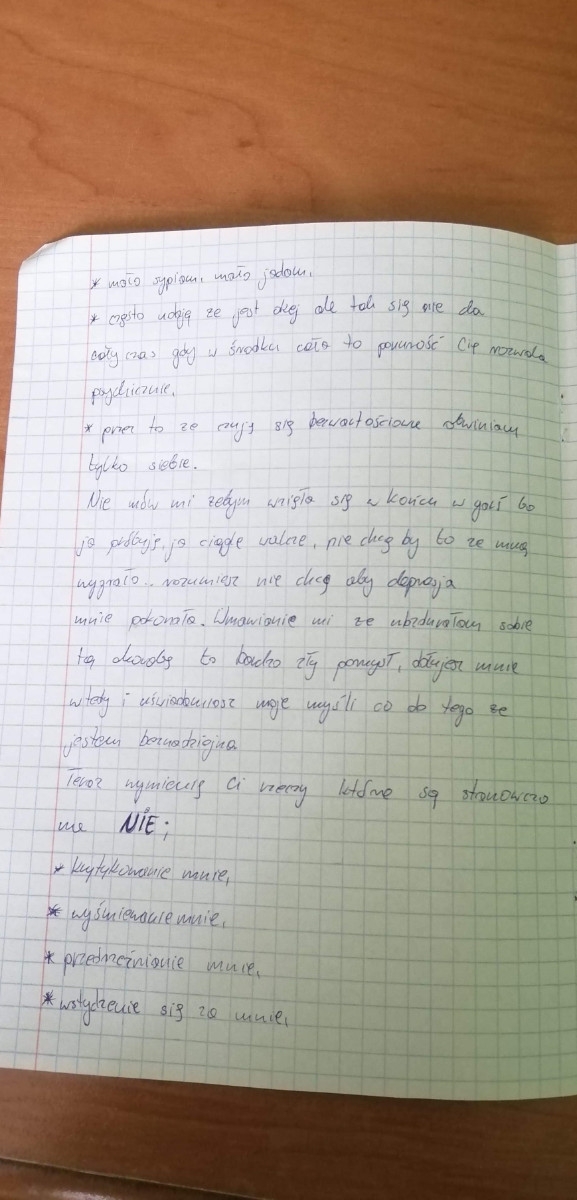 * mało sypiam, mało jadam,
* często udaję ze jest okej ale tak się nie da
cały czas gdy w środku cała to pewność Cię rozwala
psychicznie,
* przez to ze czuję się bezwartościowa obwiniam
tylko siebie.
Nie mów mi żebym wzięła się w końcu w garść bo
ja próbuję, ja ciągle walcze, nie chcę by to ze mną
wygrało.. rozumiesz nie chcę aby depresja
mnie pokonała. Wmawianie mi ze ubzdurałam sobie
tą chorobę to bardzo zły pomysł, dołujesz mnie
wtedy i uświadamiasz moje myśli co do tego ze
jestem beznadziejna
Teraz wymienię Ci rzeczy które są stanowczo
na NIE;
* krytykowanie mnie,
* wyśmiewanie mnie,
* przedrzeźnianie mnie,
* wstydzenie się za mnie,